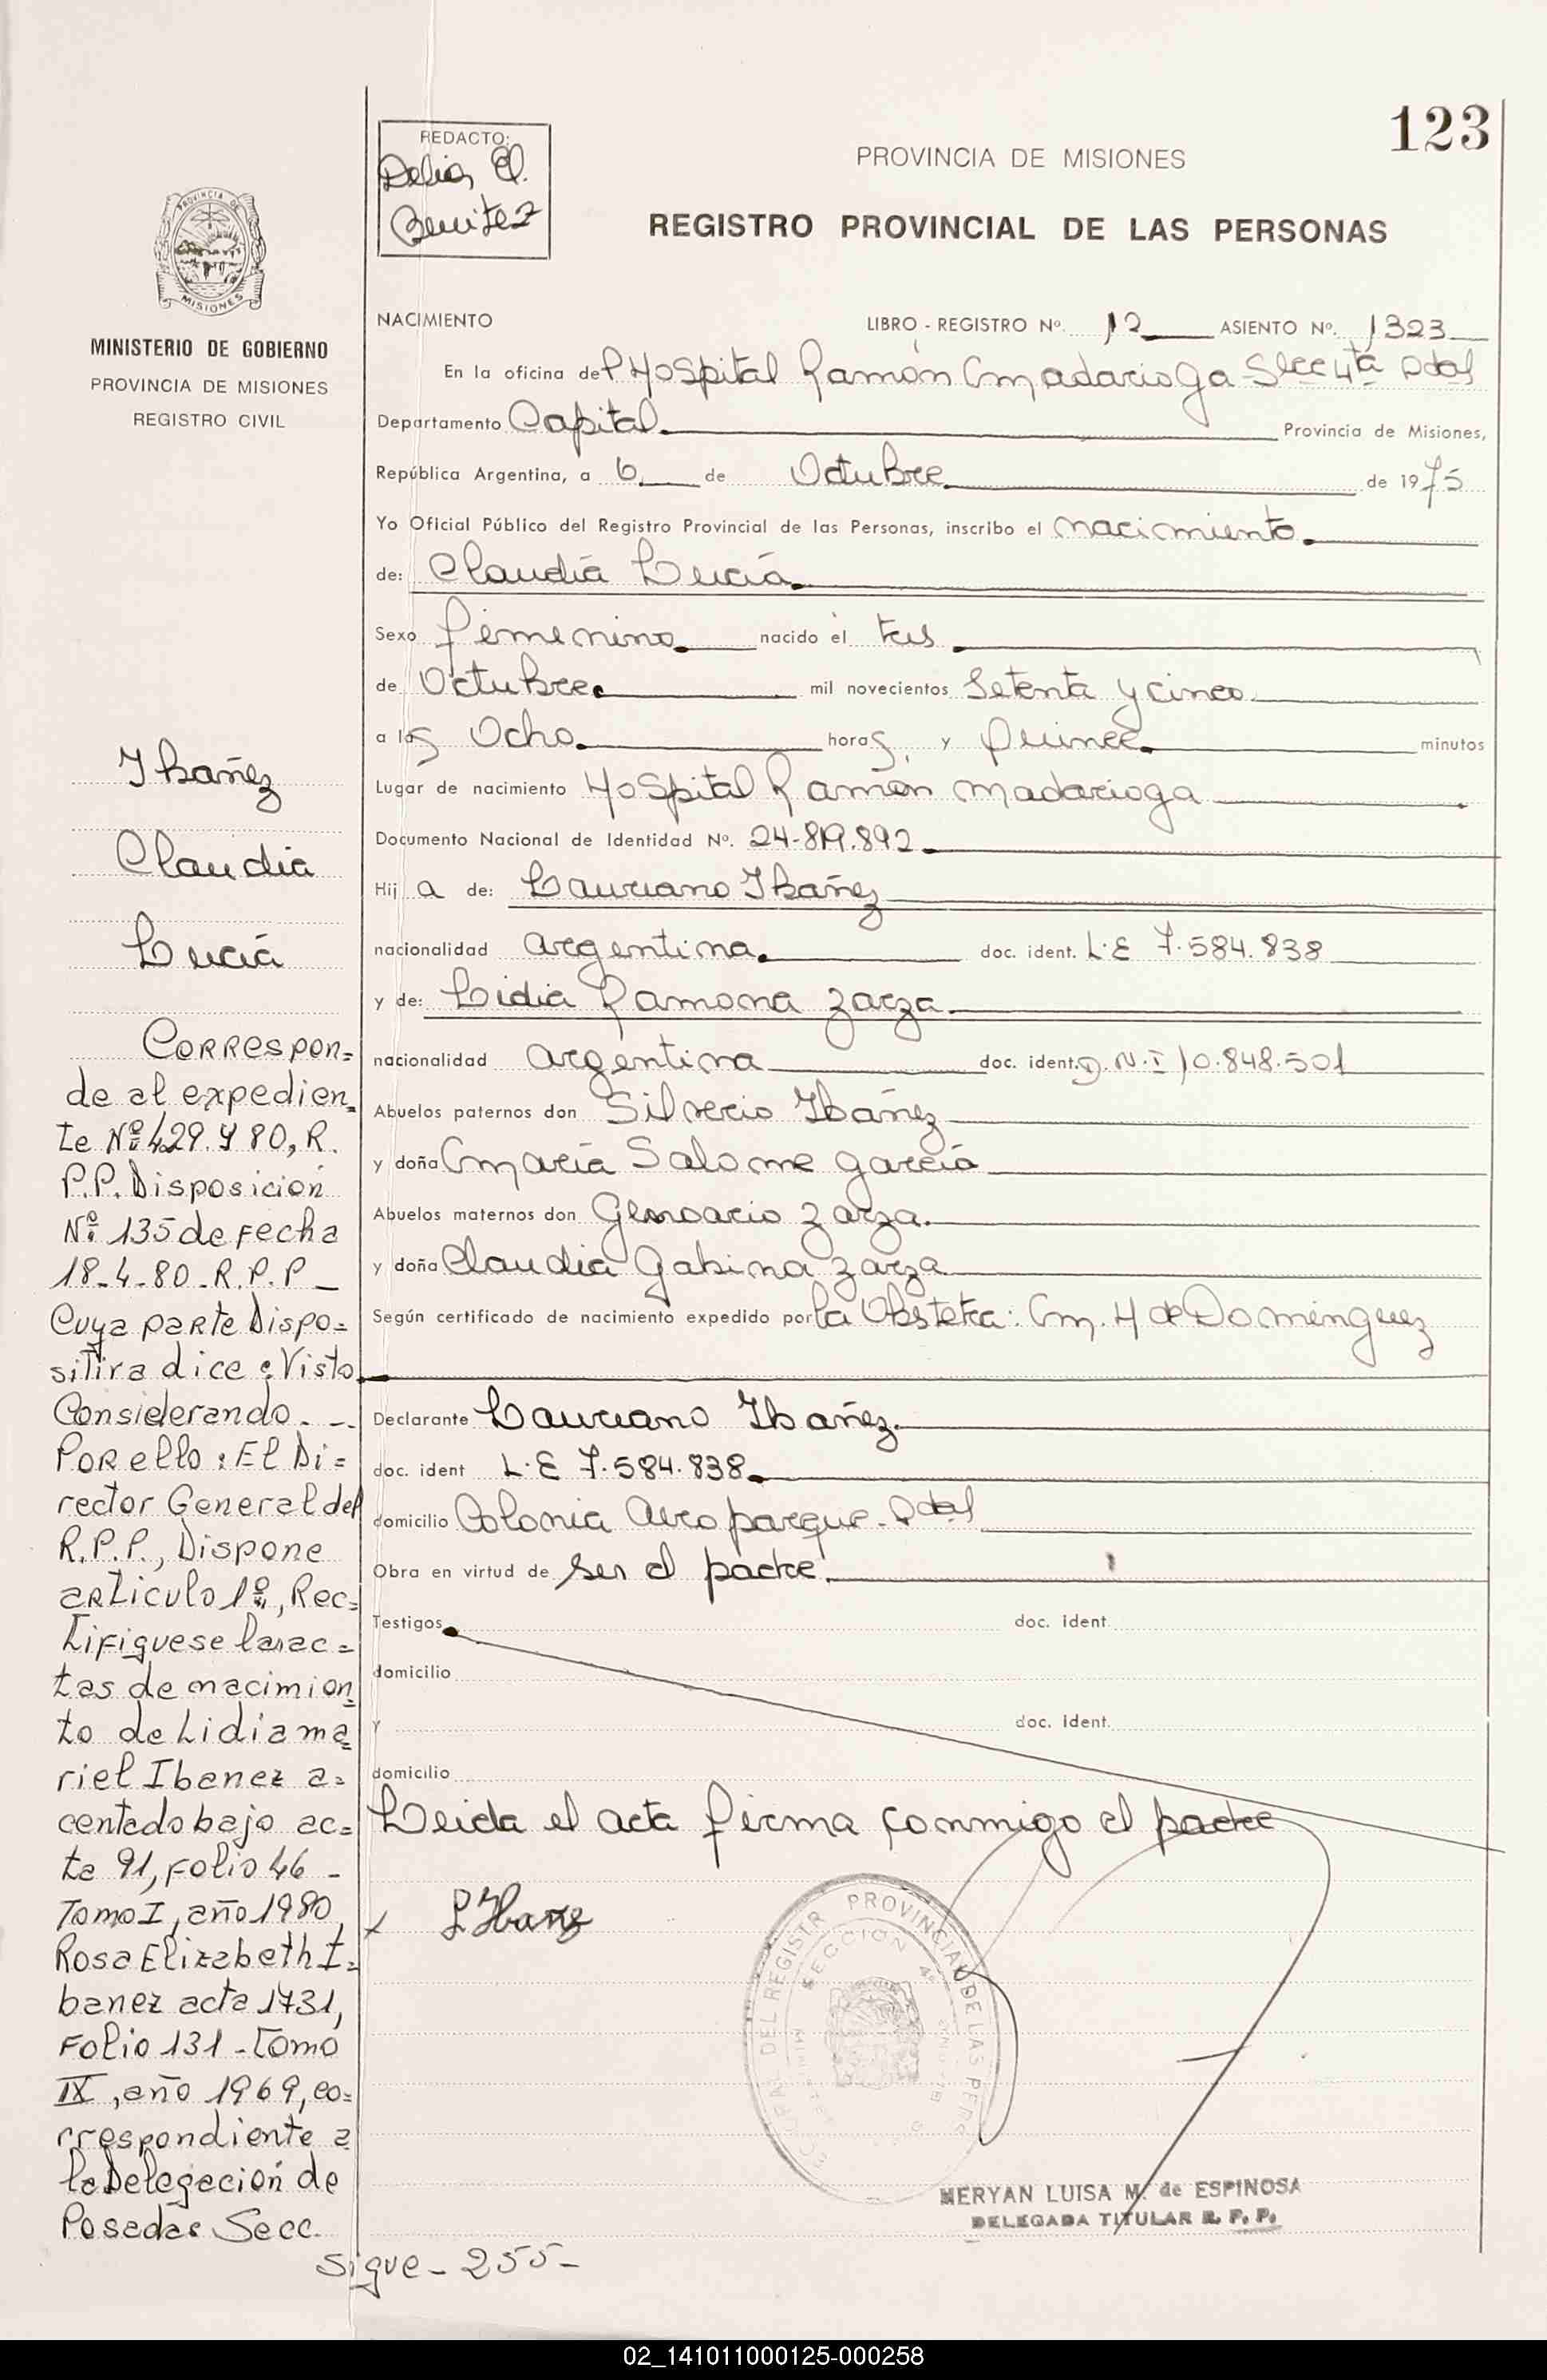 123
REDACTO:
Delia El.
Benitez
PROVINCIA DE MISIONES
REGISTRO PROVINCIAL DE LAS PERSONAS
PROVINCIA DE
MISIONES
MINISTERIO DE GOBIERNO
PROVINCIA DE MISIONES
REGISTRO CIVIL
NACIMIENTO LIBRO - REGISTRO Nº. 12 ASIENTO Nº. 1323
En la oficina del Hospital Ramón Madariaga Secc 4ta Pdas
Departamento Capital. Provincia de Misiones,
República Argentina, a 6 de Octubre de 1975
Yo Oficial Público del Registro Provincial de las Personas, inscribo el nacimiento.
de: Claudia Lucía
Sexo femenino nacido el tres
de Octubre mil novecientos Setenta y cinco
a las Ocho. horas, y Quince. minutos
Lugar de nacimiento Hospital Ramón Madariaga
Documento Nacional de Identidad Nº. 24-819.892
Hij a de: Lauriano Ibañez
nacionalidad argentina. doc. ident. L.E 7.584.838
y de: Lidia Ramona Zarza
nacionalidad argentina doc. ident. D.N.I 10.848.501
Abuelos paternos don Silverio Ibañez
y doña María Salome García
Abuelos maternos don Zarza.
y doña Claudia Gabina Zarza
Según certificado de nacimiento expedido por la Obstetra: M. H de Dominguez
Declarante Lauriano Ibañez.
doc. ident L.E 7.584.838
domicilio Colonia Aeroparque - Pdas
Obra en virtud de ser el padre.
Testigos doc. ident.
domicilio
y doc. ident.
domicilio
Leida el acta firma conmigo el padre
x L Ibañez
PROVINCIAL DE LAS PERS
DEL REGISTR
SECCION 4ª
MERYAN LUISA M. de ESPINOSA
DELEGADA TITULAR R. P. P.
Ibañez
Claudia
Lucía
Correspon=
de al expedien_
te Nº 429.Y 80, R.
P.P. Disposición
Nº 135 de Fecha
18-4-80-R.P.P _
Cuya parte Dispo=
sitiva dice: Visto
Considerando. --
Por ello: El Di=
rector General del
R.P.P., Dispone
articulo 1º, Rec=
tifiquese las ac=
tas de nacimien_
to de Lidia ma_
riel Ibanez a=
centado bajo ac=
ta 91, Folio 46 -
Tomo I, año 1980,
Rosa Elizabeth I=
banez acta 1731,
Folio 131 - Tomo
IX, año 1969, co=
rrespondiente a
la Delegación de
Posadas Secc.
sigue - 255 -
02_141011000125-000258